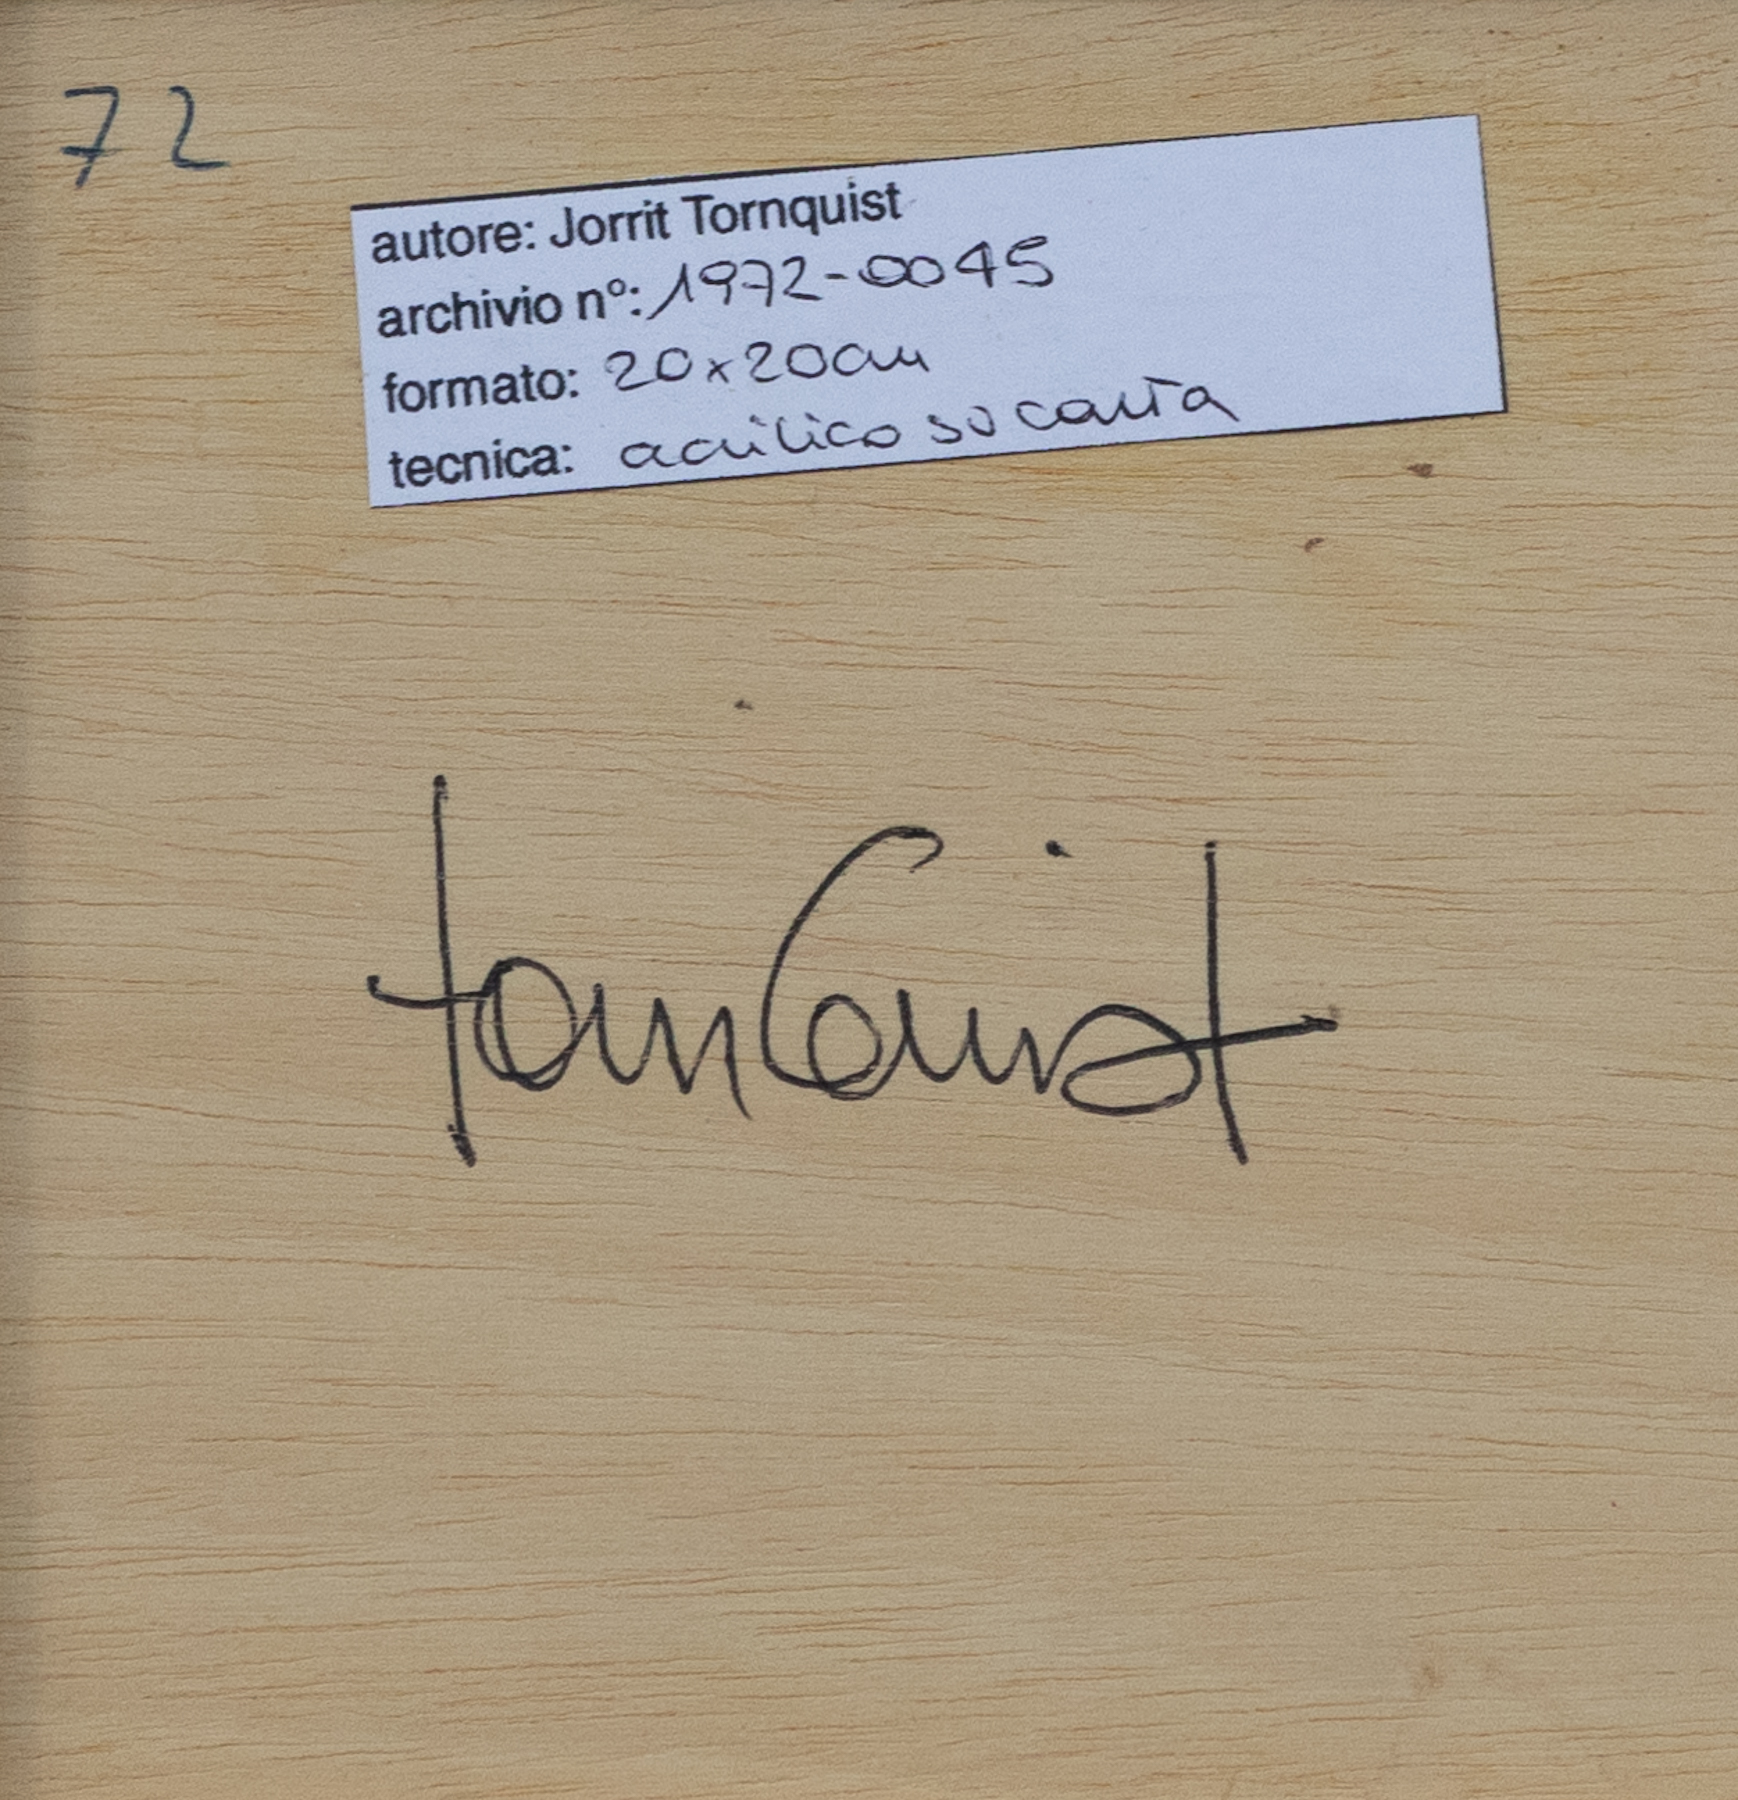 72
autore: Jorrit Tornquist
archivio n°: 1972-0045
formato: 20x20cm
tecnica: acrilico su carta
tornquist